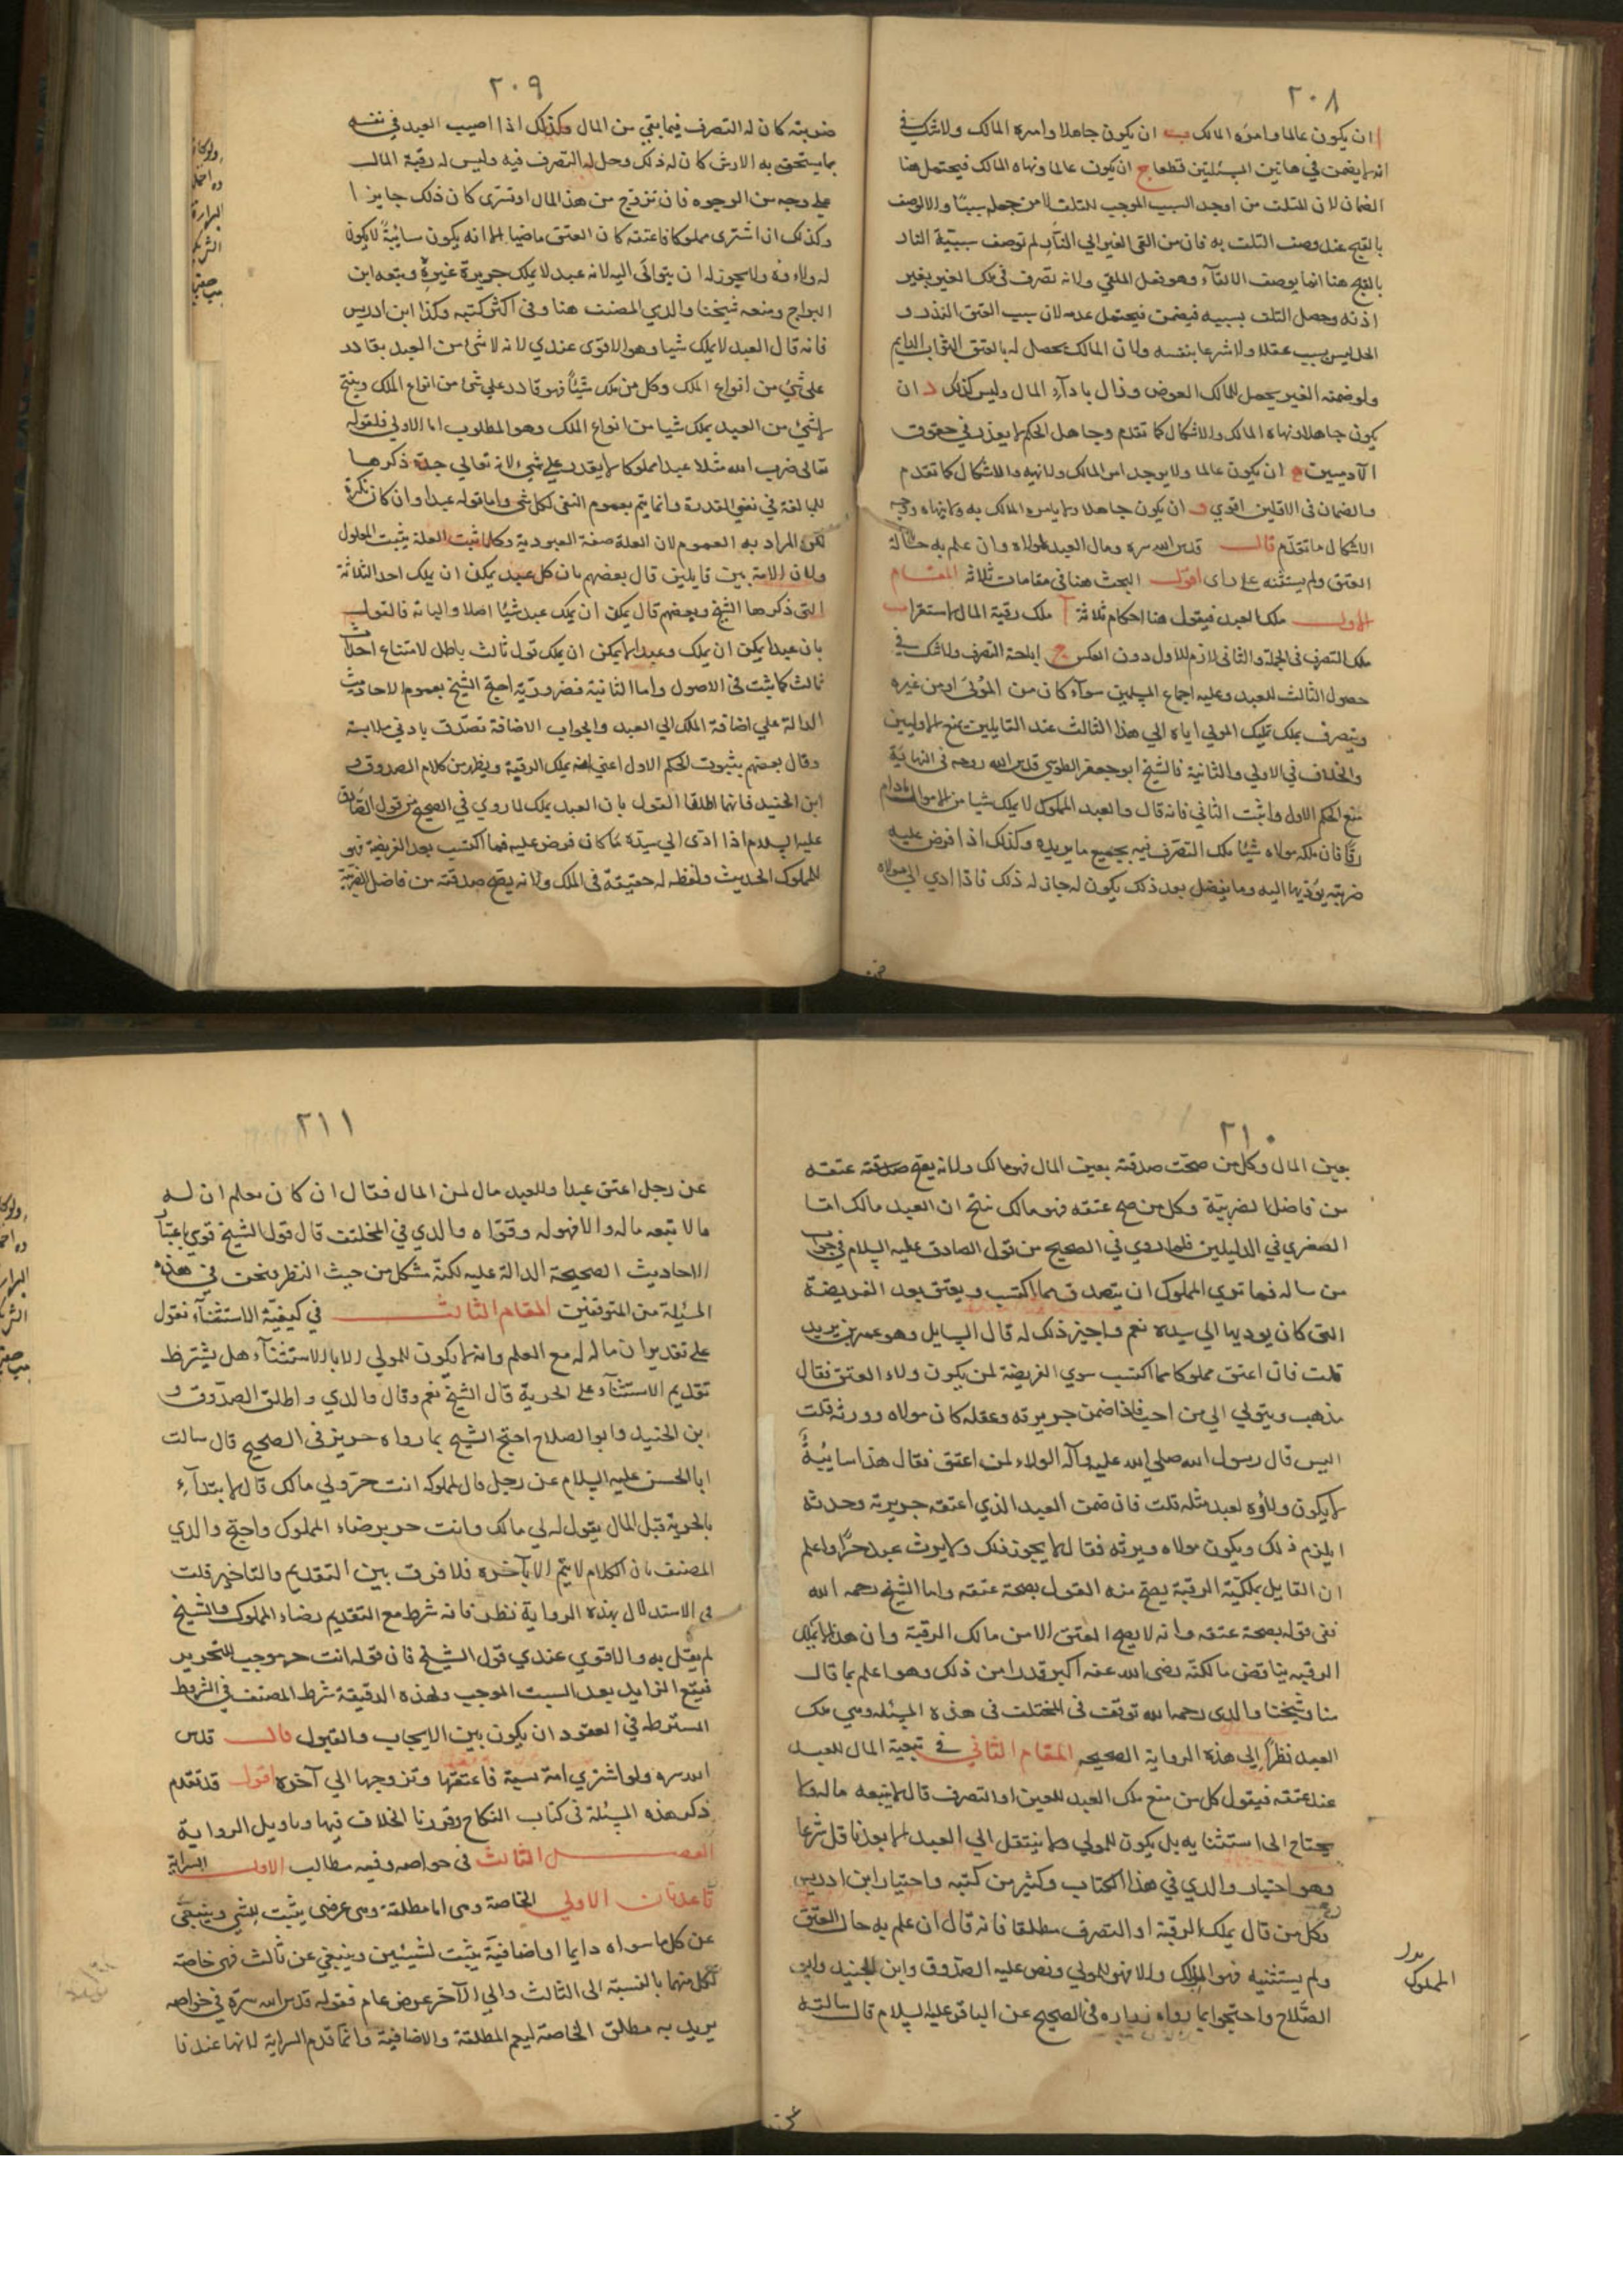 ٢٠٨
ا ان يكون عالما وامره المالك ب ان يكون جاهلا وامره المالك ولا شك في
انه لا يضمن في هاتين المسئلتين قطعا ج ان يكون عالما ونهاه المالك فيحتمل هنا
الضمان لان للتلف من اوجد السبب الموجب للتلف لا من جعله سببا والا لوصف
بالقبح عند وصف التلف به فان من القى الغير الي النار لم توصف سببية النار
بالقبح هنا انما يوصف الالقآء وهو فعل الملقي ولانه تصرف في ملك الغير بغير
اذنه وحصل التلف بسببه فيضمن فيحتمل عدمه لان سبب العتق النذر و
الحل ليس بسبب عقلا ولا شرعا بنفسه ولان المالك يحصل له بالعتق الثواب الدايم
ولو ضمنه الغير يحصل للمالك العوض وزال بادآء المال وليس كذلك د ان
يكون جاهلا ونهاه المالك والاشكال كما تقدم وجاهل الحكم لا يعذر في حقوق
الآدميين ه ان يكون عالما ولا يوجد امر المالك ولا نهيه والاشكال كما تقدم
والضمان في الاولين اقوي و ان يكون جاهلا ولا يامره المالك به ولا ينهاه ووجه
الاشكال ما تقدّم قال قدس الله سره ومال العبد لمولاه وان علم به حالة
العتق ولم يستثنه على راى اقول البحث هنا في مقامات ثلاثة المقام
الاول ملك العبد فيقول هنا احكام ثلاثة آ ملك رقية المال لاستقرا ب
ملك التصرف في الجملة والثاني لازم للاول دون العكس ج اباحة التصرف ولا شك في
حصول الثالث للعبد وعليه اجماع المسلمين سوآء كان من المولى او من غيره
ويتصرف بملك تمليك المولي اياه الي هذا الثالث عند القايلين بمنع الاوليين
والخلاف في الاولي والثانية فالشيخ ابو جعفر الطوسي قدس الله روحه في النهاية
منع الحكم الاول واثبت الثاني فانه قال والعبد المملوك لا يملك شيا من الاموال مادام
رقّا فان ملكه مولاه شيئا ملك التصرّف فيه بجميع ما يريده وكذلك اذا فرض عليه
ضريبة يؤديها اليه وما يفضل بعد ذلك يكون له جاز له ذلك فاذا ادي الى مولاه
٢٠٩
ضريبته كان له التصرف فيما بقي من المال وكذلك اذا اصيب العبد في نفسه
بما يستحق به الارش كان له ذلك وحل له التصرف فيه وليس له رقبة المال
على وجه من الوجوه فان تزوج من هذا المال او تسرى كان ذلك جايزا
وكذلك ان اشترى مملوكا فاعتقه كان العتق ماضيا الا انه يكون سائبةً لا يكون
له ولاوه ولا يجوز له ان يتوالى اليه لانه عبد لا يملك جريرة غيره وتبعه ابن
البراج ومنعه شيخنا والدي المصنف هنا وفي اكثر كتبه وكذا ابن ادريس
فانه قال العبد لا يملك شيا وهو الاقوى عندي لانه لا شئ من العبد بقادر
على شئ من انواع الملك وكل من ملك شيئاً فهو قادر على شئ من انواع الملك وينتج
لا شئ من العبد يملك شيا من انواع الملك وهو المطلوب اما الاولى فلقوله
تعالى ضرب الله مثلا عبدا مملوكا لا يقدر على شئ لانه تعالي جلّ ذكرها
للمبالغة في نفي القدرة وانما يتم بعموم النفي لكل شئ واما قوله عبدا وان كان نكرة
لكن المراد به العموم لان العلة صفة العبودية وكلما ثبت العلة يثبت المعلول
ولان الامة بين قايلين قال بعضهم بان كل عبد يمكن ان يملك احد الثلاثة
التي ذكرها الشيخ وبعضهم قال يمكن ان يملك عبد شيئا اصلا والباته فالقول
بان عبدا يمكن ان يملك وعبدا لا يمكن ان يملك قول ثالث باطل لامتناع احداث
ثالث كما ثبت في الاصول واما الثانية فضروريّة احتج الشيخ بعموم الاحاديث
الدالة علي اضافة الملك الي العبد والجواب الاضافة تصدّق بادني ملابسة
وقال بعضهم بثبوت الحكم الاول اعني انه يملك الرقبة ويظهر من كلام الصدوق و
ابن الجنيد فانهما اطلقا القول بان العبد يملك لما روي في الصحيح من قول الصادق
عليه السلام اذا ادى الي سيّده ما كان فرض عليه فما اكتسب بعد الفريضة فهو
للمملوك الحديث ولفظه له حقيقة في الملك ولانه يصح صدقته من فاضل الضريبة
٢١٠
بعين المال وكل من صحّت صدقته بعين المال فهو مالك ولانه يصح صدقته عتقه
من فاضل الضريبة وكل من صح عتقه فهو مالك ينتج ان العبد مالك امّا
الصغري في الدليلين فلما روي في الصحيح من قول الصادق عليه السلام في جواب
من ساله فما تري المملوك ان يتصدق مما اكتسب ويعتق بعد الفريضة
التي كان يوديها الي سيده نعم واجيز ذلك له قال السايل وهو عمر بن يزيد
قلت فان اعتق مملوكا مما اكتسب سوي الفريضة لمن يكون ولاء العتق فقال
يذهب ويتولي الي من احب فاذا ضمن جريرته وعقله كان مولاه وورثه قلت
اليس قال رسول الله صلي الله عليه وآله الولاء لمن اعتق فقال هذا سائبةٌ
لا يكون ولاؤه لعبد مثله قلت فان ضمن العبد الذي اعتقه جريرته وحدثه
ايلزم ذلك ويكون مولاه ويرثه فقال لا يجوز ذلك ولا يرث عبد حرّا واعلم
ان القايل بملكيّة الرقبة يصح منه القول بصحة عتقه واما الشيخ رحمه الله
ففي قوله بصحة عتقه وانه لا يصح العتق الا من مالك الرقبة وان هذا لا يملك
الرقبه يناقض ما لكنّه رضى الله عنه اكبر قدرا من ذلك وهو اعلم بما قال
منا وشيخنا والدي رحمه الله توقف في المختلف في هذه المسئله وهي ملك
العبد نظراً الى هذه الرواية الصحيحه المقام الثاني في تبعية المال للعبد
عند عتقه فيقول كل من منع ملك العبد للعين او التصرف قال لا يتبعه ماله ولا
يحتاج الى استثنايه بل يكون للمولي ولا ينتقل الي العبد الا بعد ناقل شرعا
وهو اختيار والدي في هذا الكتاب وكثير من كتبه واختيار ابن ادريس
وكل من قال بملك الرقبة او التصرف مطلقا فانه قال ان علم به حال العتق
ولم يستثنيه فهو المالك والا فهو للمولي ونص عليه الصدّوق وابن الجنيد وابو
الصّلاح واحتجوا بما رواه زراره في الصحيح عن الباقر عليه السلام قال سالته
المملوك
٢١١
عن رجل اعتق عبدا وللعبد مال لمن المال فقال ان كان يعلم ان له
مالا تبعه ماله والا فهو له وقوّاه والدي في المختلف قال قول الشيخ قوي باعتبار
الاحاديث الصحيحة الدالة عليه لكنّه مشكل من حيث النظر ونحن في هذه
المسئلة من المتوقفين المقام الثالث في كيفية الاستثنآء نقول
على تقدير ان ماله له مع العلم وانه لا يكون للمولي الا بالاستثنآء هل يشترط
تقديم الاستثنآء على الحرية قال الشيخ نعم وقال والدي و اطلق الصدّوق و
ابن الجنيد وابو الصلاح احتج الشيخ بما رواه حريز في الصحيح قال سالت
ابا الحسن عليه السلام عن رجل قال لمملوكه انت حرّ ولي مالك قال لا يبتدآء
بالحرية قبل المال يقول له لي مالك وانت حر برضاء المملوك واحتج والدي
المصنف بان الكلام لا يتم الا بآخره فلا فرق بين التقديم والتاخير قلت
في الاستدلال بهذه الرواية نظر فانه شرط مع التقديم رضاء المملوك والشيخ
لم يقل به والاقوي عندي قول الشيخ فان قوله انت حر موجب للتحرير
فيقع الزايد بعد السبب الموجب ولهذه الدقيقة شرط المصنف في الشروط
المشترطه في العقود ان يكون بين الايجاب والقبول قال قدس
الله سره ولو اشتري امة نسية فاعتقها وتزوجها الي آخره اقول قد تقدم
ذكر هذه المسئلة في كتاب النكاح وقررنا الخلاف فيها وتاويل الرواية
الفصل الثالث في خواصه وفيه مطالب الاول السراية
قاعدتان الاولي الخاصة وهى اما مطلقة وهى عرضى يثبت للشي وينتفى
عن كل ما سواه دايما او اضافيّة يثبت لشيئين وينتفي عن ثالث فهى خاصة
لكل منهما بالنسبة الى الثالث والي الآخر عرض عام فقوله قدس الله سرّه في خواصه
يريد به مطلق الخاصة ليعم المطلقة والاضافية وانّما قدم السراية لانها عندنا